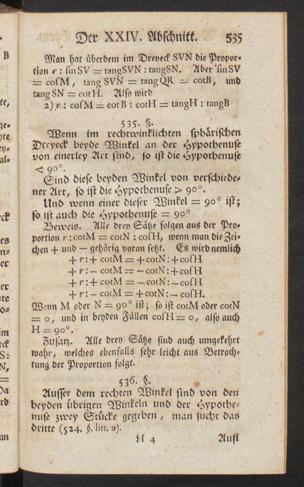 Der XXIV. Abschnitt. 535
Man hat überdem im Dreyeck SVN die Propor-
tion r : sin SV = tang SVN : tang SN. Aber sin SV
= cos M, tang SVN = tang QR = cot B, und
tang SN = cot H. Also wird
2) r : cos M = cot B : cot H = tang H : tang B
535. §.
Wenn im rechtwinklichten sphärischen
Dreyeck beyde Winkel an der Hypothenuse
von einerley Art sind, so ist die Hypothenuse
< 90°.
Sind diese beyden Winkel von verschiede-
ner Art, so ist die Hypothenuse > 90°.
Und wenn einer dieser Winkel = 90° ist;
so ist auch die Hypothenuse = 90°
Beweis. Alle drey Sätze folgen aus der Pro-
portion r : cot M = cot N : cos H, wenn man die Zei-
chen + und − gehörig voran setzt. Es wird nemlich
+ r : + cot M = + cot N : + cos H
+ r : − cot M = − cot N : + cos H
+ r : − cot M = + cot N : − cos H
+ r : + cot M = − cot N : − cos H.
Wenn M oder N = 90° ist; so ist cot M oder cot N
= 0, und in beyden Fällen cos H = 0, also auch
H = 90°.
Zusatz. Alle drey Sätze sind auch umgekehrt
wahr, welches ebenfalls sehr leicht aus Betrach-
tung der Proportion folgt.
536. §.
Ausser dem rechten Winkel sind von den
beyden übrigen Winkeln und der Hypothe-
nuse zwey Stücke gegeben, man sucht das
dritte (524. §. litt. a).
Ll 4 Aufl